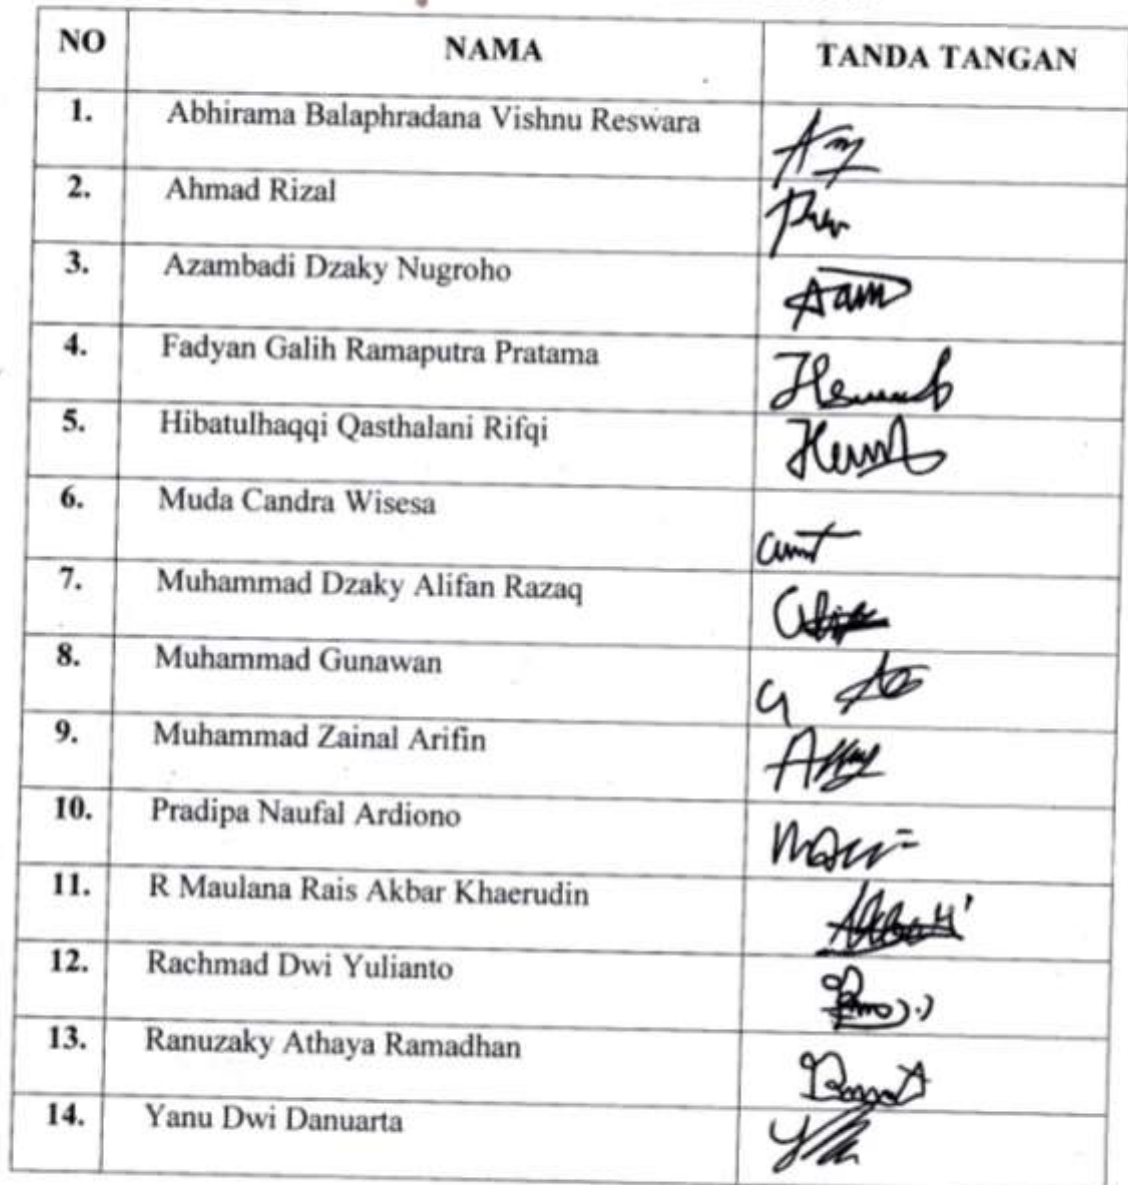 NO NAMA TANDA TANGAN
1. Abhirama Balaphradana Vishnu Reswara
2. Ahmad Rizal
3. Azambadi Dzaky Nugroho
4. Fadyan Galih Ramaputra Pratama
5. Hibatulhaqqi Qasthalani Rifqi
6. Muda Candra Wisesa
7. Muhammad Dzaky Alifan Razaq
8. Muhammad Gunawan
9. Muhammad Zainal Arifin
10. Pradipa Naufal Ardiono
11. R Maulana Rais Akbar Khaerudin
12. Rachmad Dwi Yulianto
13. Ranuzaky Athaya Ramadhan
14. Yanu Dwi Danuarta